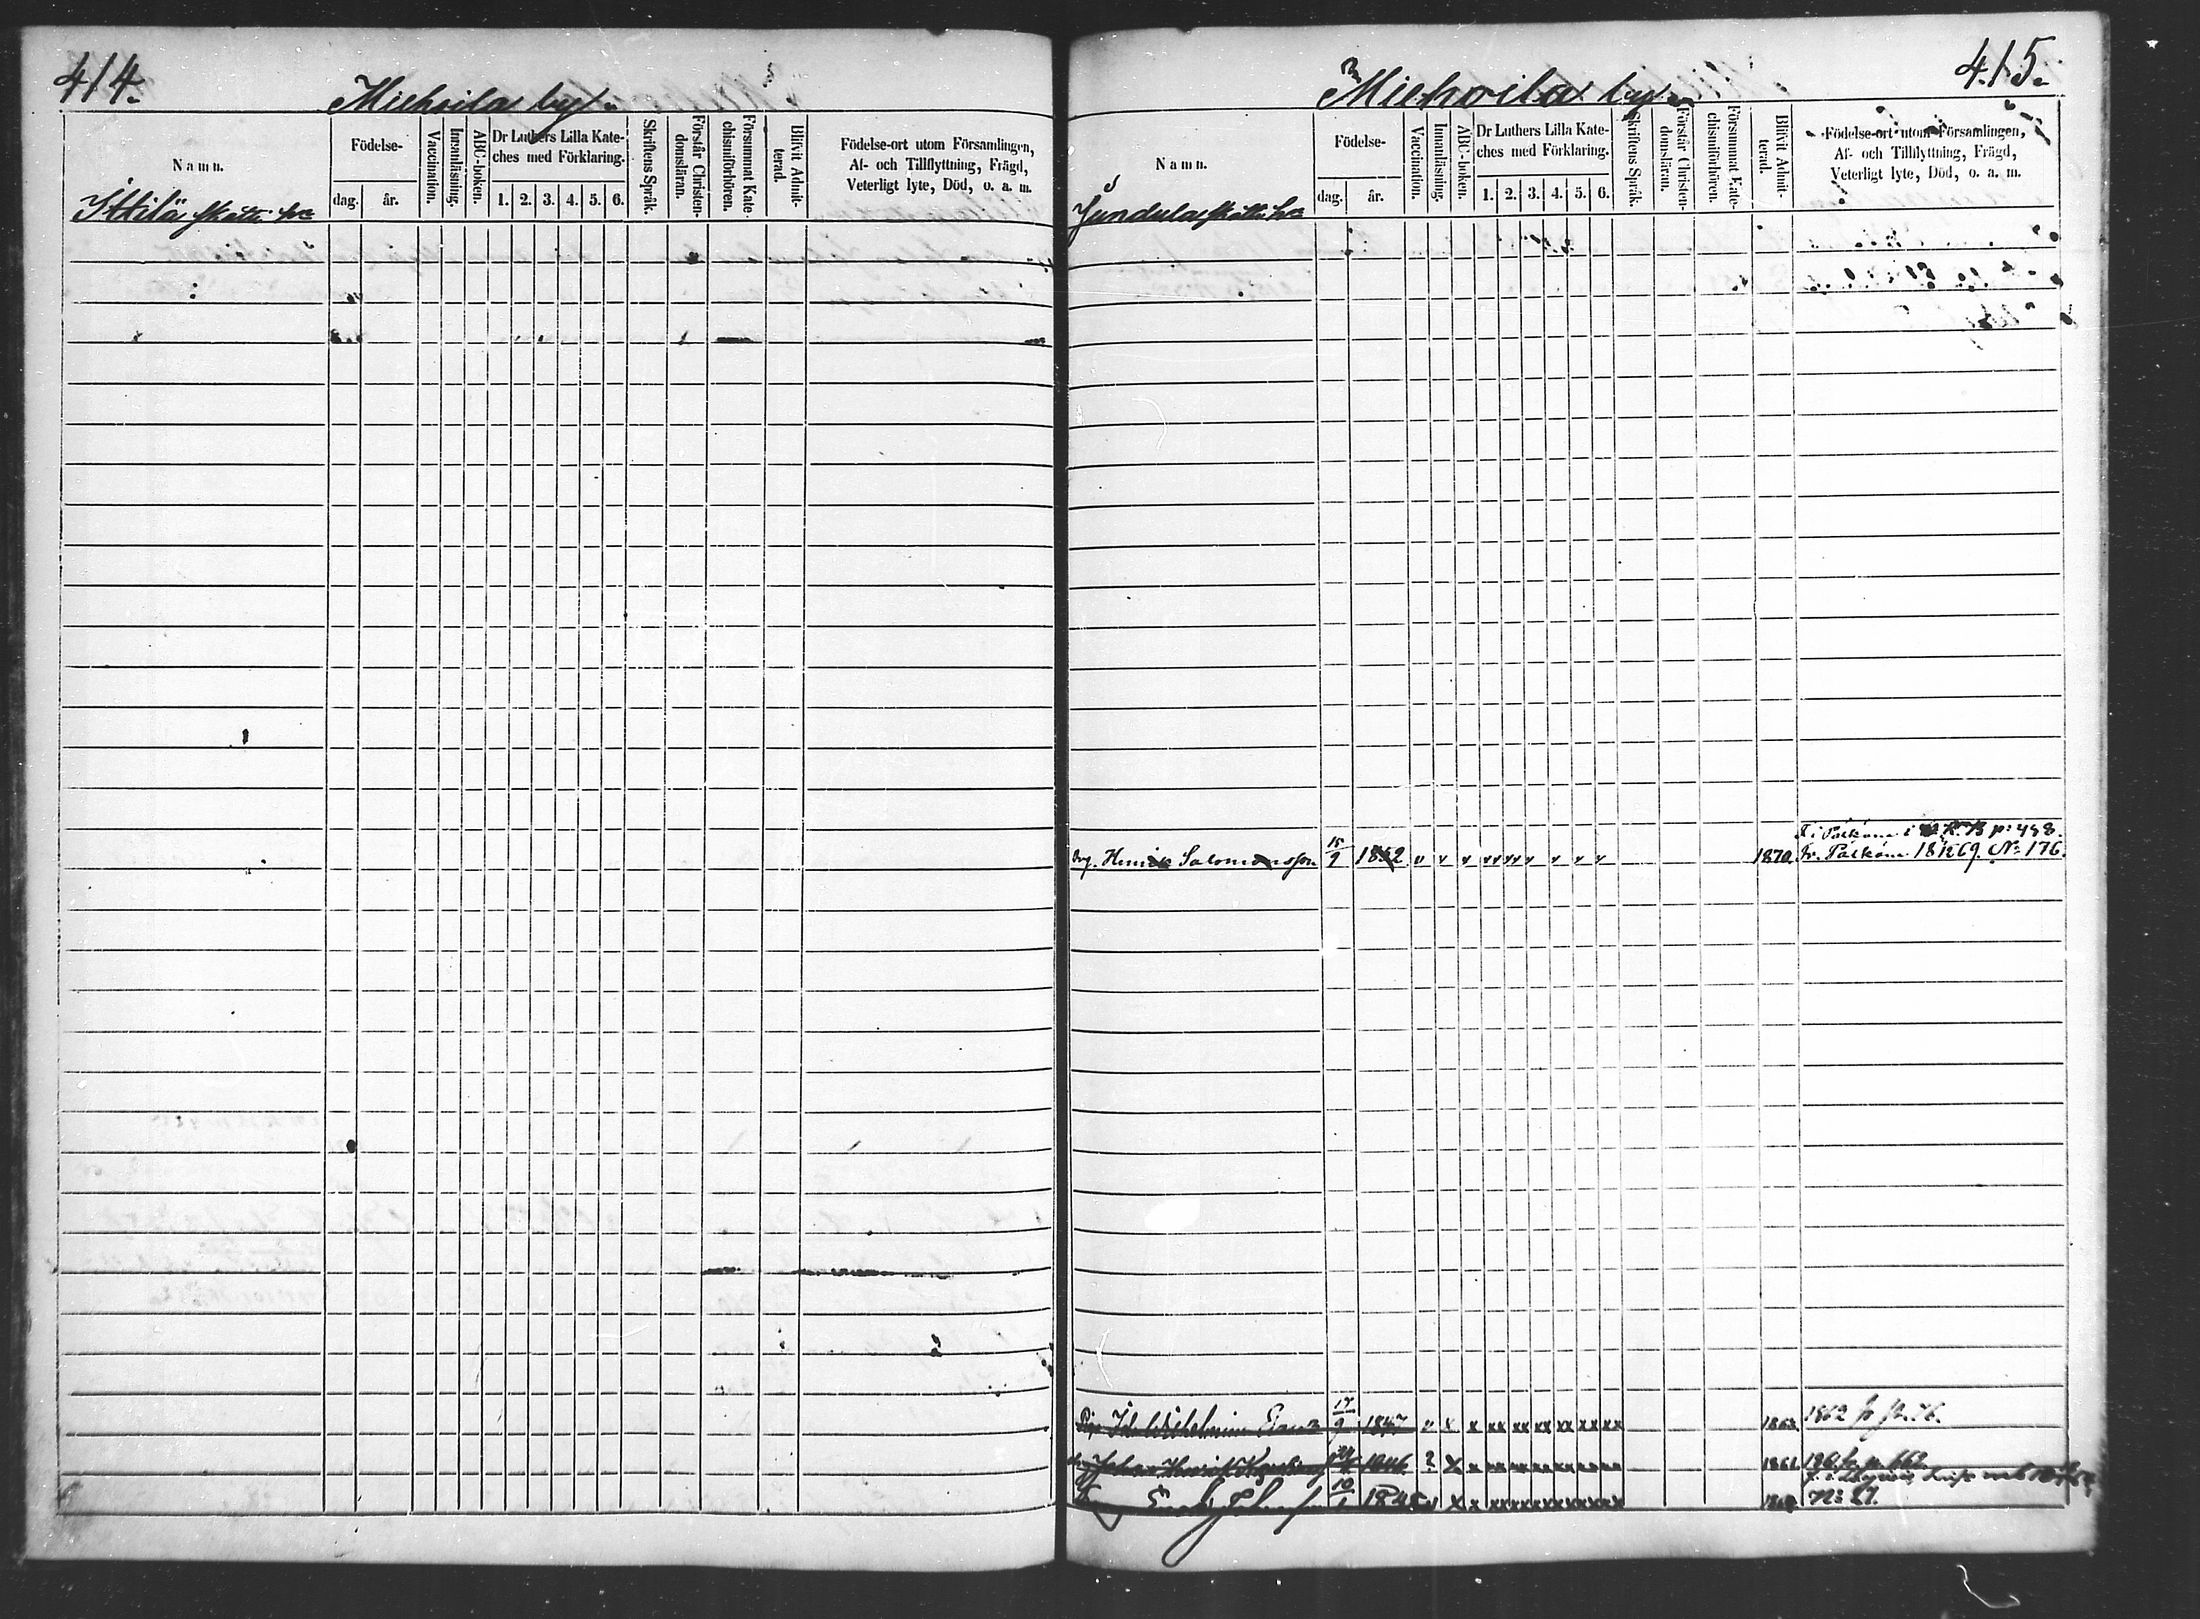 414.
Miehoila by.
Namn.
Födelse-
dag.
år.
Vaccination.
Innanläsning.
ABC-boken.
Dr Luthers Lilla Kate-
ches med Förklaring.
1. 2. 3. 4. 5. 6.
Skriftens Språk.
Förstår Christen-
domsläran.
Försummat Kate-
chismiförhören.
Blifvit Admit-
terad.
Födelse-ort utom Församlingen,
Af- och Tillflyttning, Frägd,
Veterligt lyte, Död, o. a. m.
Ittilä skatte
415.
Miehoila by
Namn.
Födelse-
dag.
år.
Vaccination.
Innanläsning.
ABC-boken.
Dr Luthers Lilla Kate-
ches med Förklaring.
1. 2. 3. 4. 5. 6.
Skriftens Språk.
Förstår Christen-
domsläran.
Försummat Kate-
chismiförhören.
Blifvit Admit-
terad.
Födelse-ort utom Församlingen,
Af- och Tillflyttning, Frägd,
Veterligt lyte, Död, o. a. m.
Jundula skatte
Pälkäne i K.B. p: 448.
Drg. Henrik Salomonsson 15/9 1852 v v v vv vv v v v v 1870. Fr. Pälkäne 18 69. No 176.
Pig. Ida Wilhelmina 17/9 1847 v x x xx xx xx xx xx xx 1863. 1862 fr p. 76.
Johan Henrik 1846 ? x x 1861. p. 662
10/1 1848 v x x xx xx xx xx xx xx No 21.